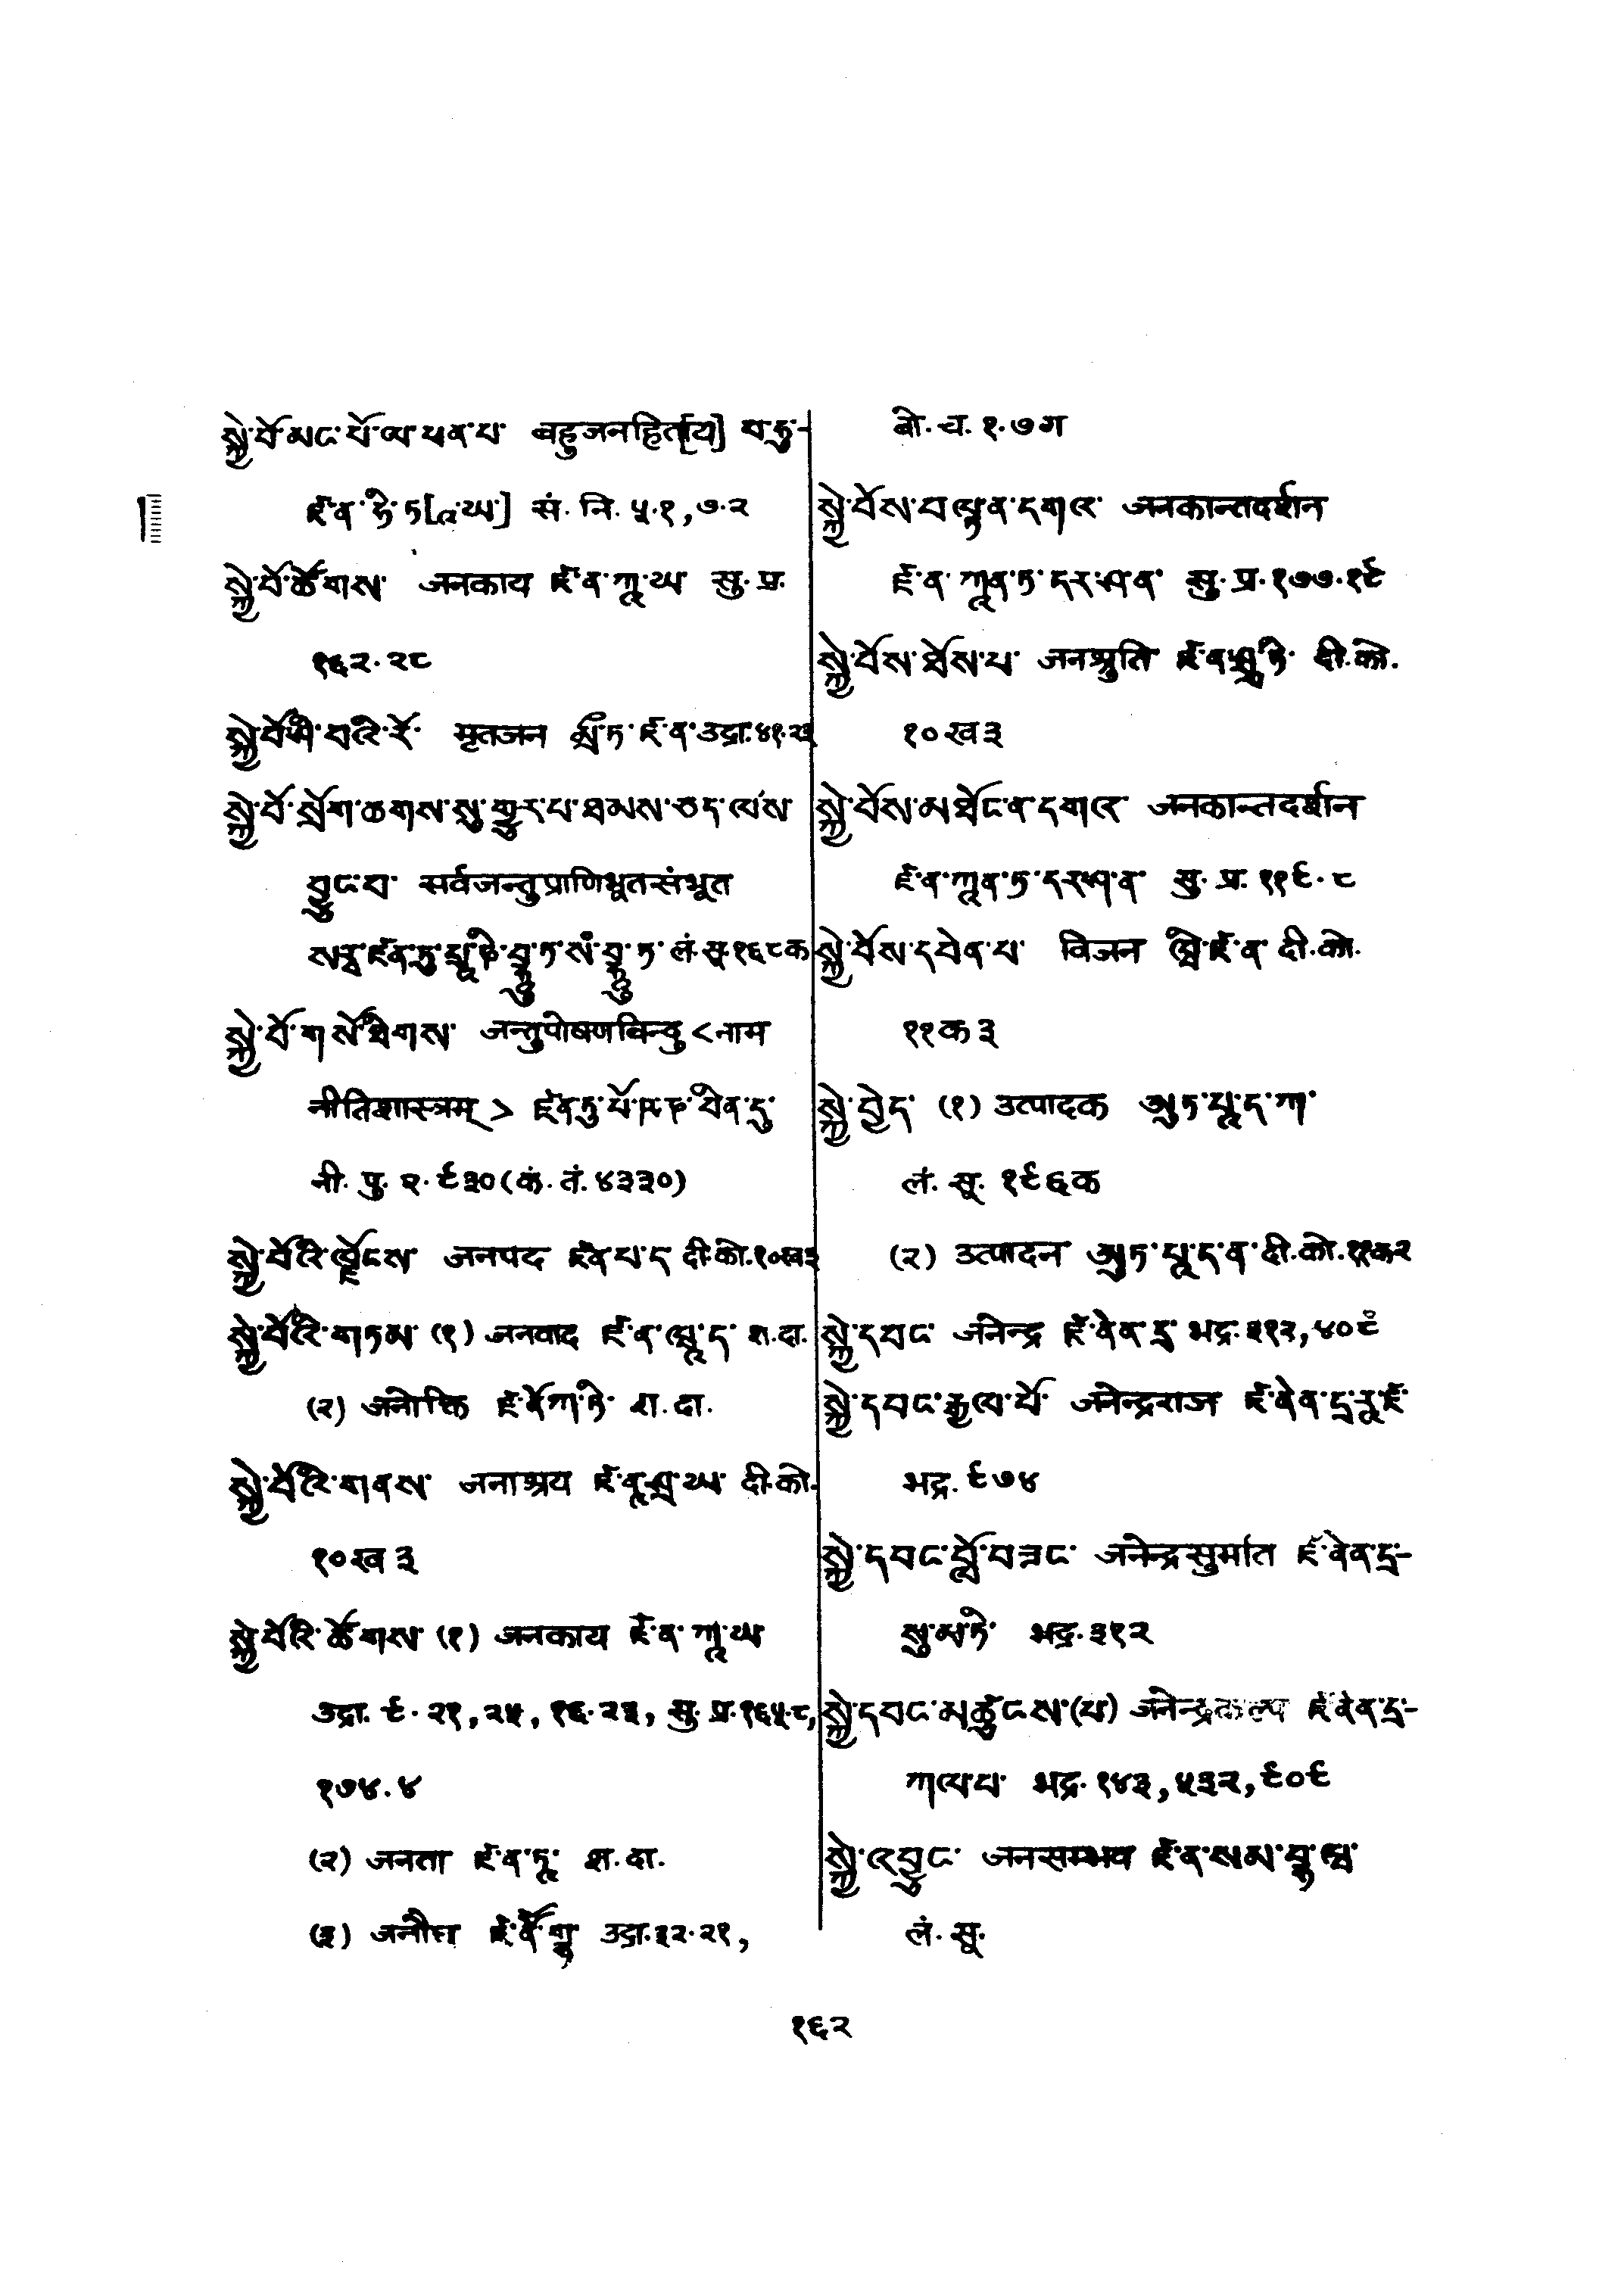 སྐྱེ་བོ་མང་པོ་ལ་ཕན་པ་ बहुजनहिता[य] བ་ཧུ་-
ཛ་ན་ཧི་ཏ[འ་ཡ་] सं. नि. ५.१,७.२
སྐྱེ་བོ་ཚོགས་ जनकाय ཛ་ན་ཀཱ་ཡ सु. प्र.
१६२.२८
སྐྱེ་བོ་ཤི་བའི་རོ་ मृतजन མྲྀ་ཏ་ཛ་ན་ उद्रा.४१.२३
སྐྱེ་བོ་སྲོག་ཆགས་སུ་གྱུར་པ་ཐམས་ཅད་ལས་
བྱུང་བ་ सर्वजन्तुप्राणिभूतसंभूत
སརྦ་ཛན་ཏུ་པྲཱ་ཎི་བྷཱུ་ཏ་སཾ་བྷཱུ་ཏ་ लं.सू.१६८क
སྐྱེ་བོ་གསོ་ཐིགས་ जन्तुपोषणबिन्दु <नाम
नीतिशास्त्रम्> ཛན་ཏུ་པོ་ཥ་ཎ་བིན་དུ་
नी. पु. २.९३० (क. तं. ४३३०)
སྐྱེ་བོའི་ལྗོངས་ जनपद ཛ་ན་པ་ད दी.को.१०ख३
སྐྱེ་བོའི་གཏམ་ (१) जनवाद ཛ་ན་ཝཱ་ད་ श.दा.
(२) जनोक्ति ཛ་ནོཀ་ཏི་ श.दा.
སྐྱེ་བོའི་གནས་ जनाश्रय ཛ་ནཱ་ཤྲ་ཡ་ दी.को.
१०ख३
སྐྱེ་བོའི་ཚོགས་ (१) जनकाय ཛ་ན་ཀཱ་ཡ
उद्रा. ९.२१,२५, १६.२३, सु. प्र.१६५.८,
१७४.४
(२) जनता ཛ་ན་ཏཱ་ श.दा.
(३) जनौघ ཛ་ནཽ་གྷ་ उद्रा.३२.२१,
बो.च. १.७ग
སྐྱེ་བོས་བལྟ་ན་དགའ་ जनकान्तदर्शन
ཛ་ན་ཀཱན་ཏ་དར་ཤ་ན་ सु.प्र.१७७.१९
སྐྱེ་བོས་ཐོས་པ་ जनश्रुति ཛ་ན་ཤྲུ་ཏི་ दी.को.
१०ख३
སྐྱེ་བོས་མཐོང་ན་དགའ་ जनकान्तदर्शन
ཛ་ན་ཀཱན་ཏ་དར་ཤ་ན་ सु. प्र. ११९.८
སྐྱེ་བོས་དབེན་པ་ विजन ཝི་ཛ་ན दी.को.
११क३
སྐྱེ་བྱེད་ (१) उत्पादक ཨུཏ་པཱ་ད་ཀ་
लं. सू. १९६क
(२) उत्पादन ཨུཏ་པཱ་ད་ན་ दी.को.११क२
སྐྱེ་དབང་ जनेन्द्र ཛ་ནེན་དྲ་ भद्र.३१२,४०९
སྐྱེ་དབང་རྒྱལ་པོ་ जनेन्द्रराज ཛ་ནེན་དྲ་རཱ་ཛ་
भद्र. ९७४
སྐྱེ་དབང་བློ་བཟང་ जनेन्द्रसुमति ཛ་ནེན་དྲ་-
སུ་མ་ཏི་ भद्र.३१२
སྐྱེ་དབང་མཚུངས་(པ) जनेन्द्रकल्प ཛ་ནེན་དྲ་-
ཀལ་པ་ भद्र. १४३,५३२,९०९
སྐྱེ་འབྱུང་ जनसम्भव ཛ་ན་སམ་བྷ་ཝ་
लं. सू.
१६२